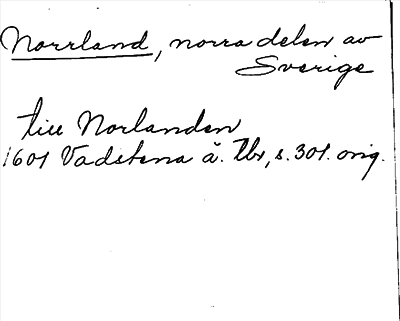 Norrland, norra delen av
Sverige
till Norlanden
1601 Vadstena ä. tb, s. 301. orig.